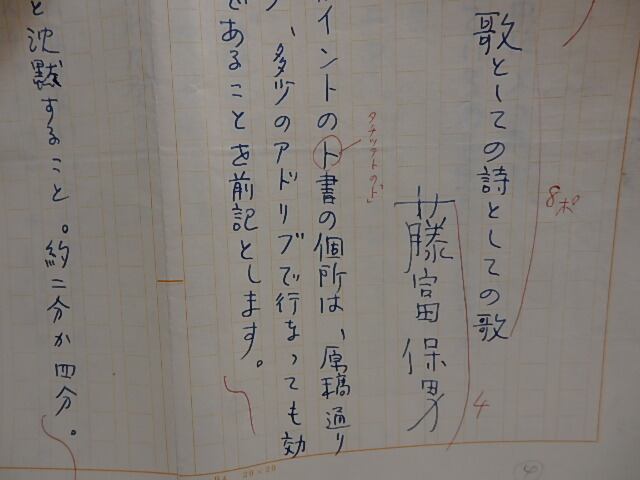 歌としての詩としての歌
8ポ
藤富保男
4
イントのト書の個所は、原稿通り
タチツテトのト」
、多少のアドリブで行なっても効
であることを前記とします。
と沈黙すること。約二分か四分。
20×20